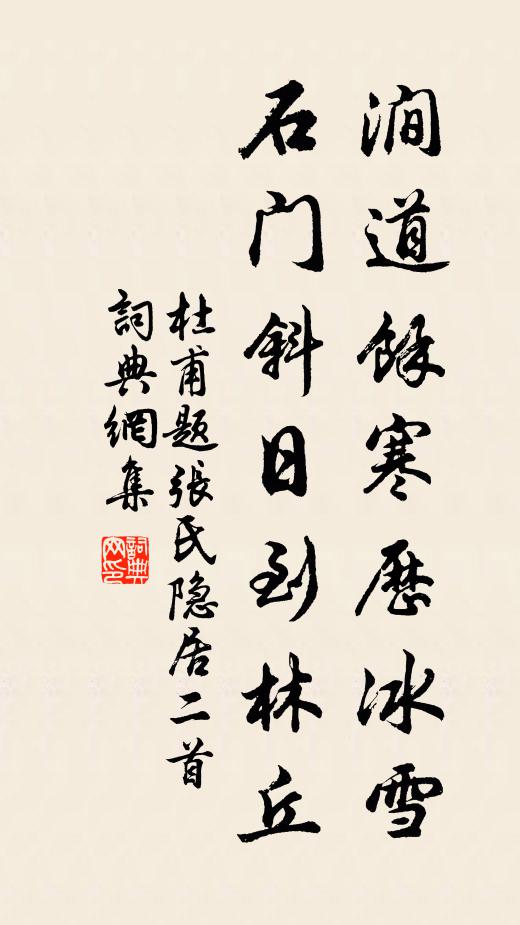 澗道餘寒歷冰雪
石门斜日到林丘
杜甫题張氏隐居二首
詞典網集
詞典网印